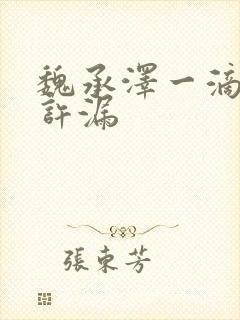 魏承澤一滴
許漏
張東芳